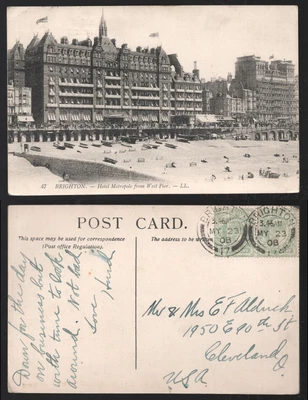 47 BRIGHTON. - Hotel Metropole from West Pier. - LL.
POST CARD.
This space may be used for correspondence
(Post office Regulations).
The address to be written
BRIGHTON
MY 23
08
BRIGHTON
MY 23
08
Down for this day
on business but
with time to look
around. Not bad
Love
Mr & Mrs E F Aldrich
1950 E 90th St
Cleveland
USA